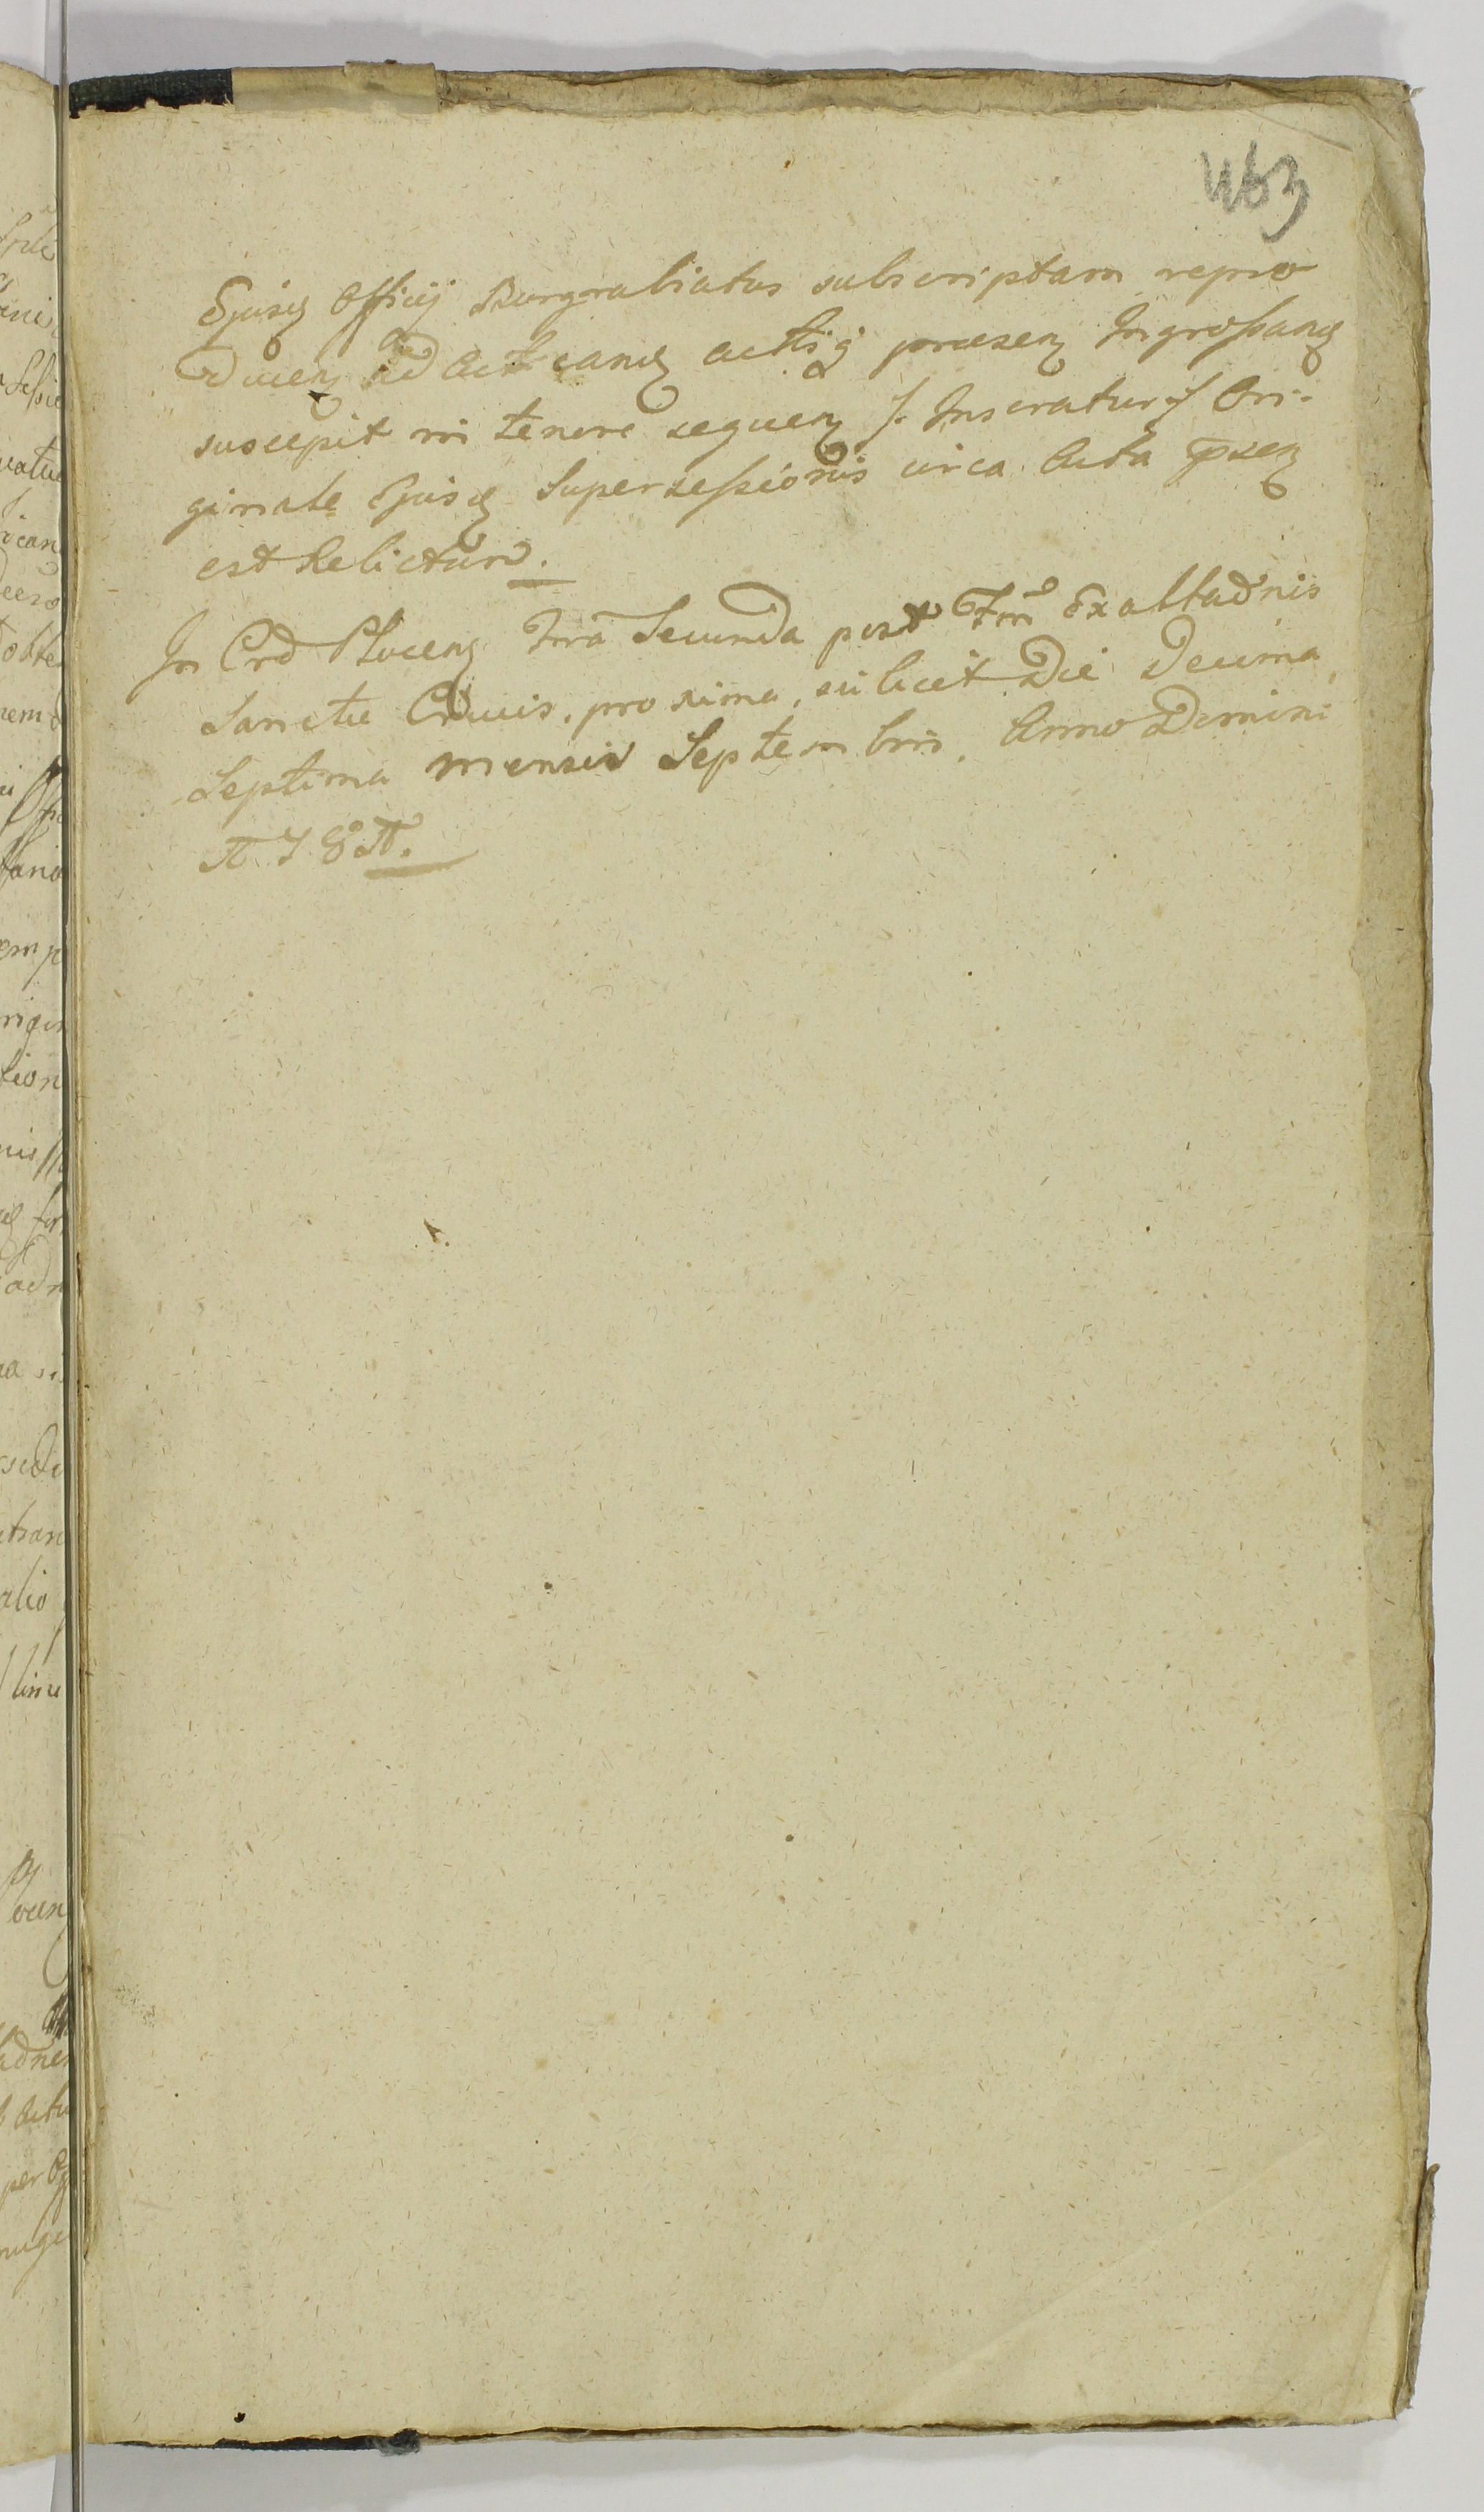 463
Ejusq Officij Burgrabiatus subscriptam repro
ducenz ad Act eamq actisq praesenz Ingrossanq
suscepit mi tenore sequenz /: Inseratur :/ Ori-
ginale Ejusq Supersessionis circa Acta pzsenz
est Relictum.
In Crö Plocenz Fria Secunda post Ftm Exaltaõnis
Sanctae Crucis, proxima, scilicet Die Decima
Septima mensis Septembris, Anno Domini
1781.